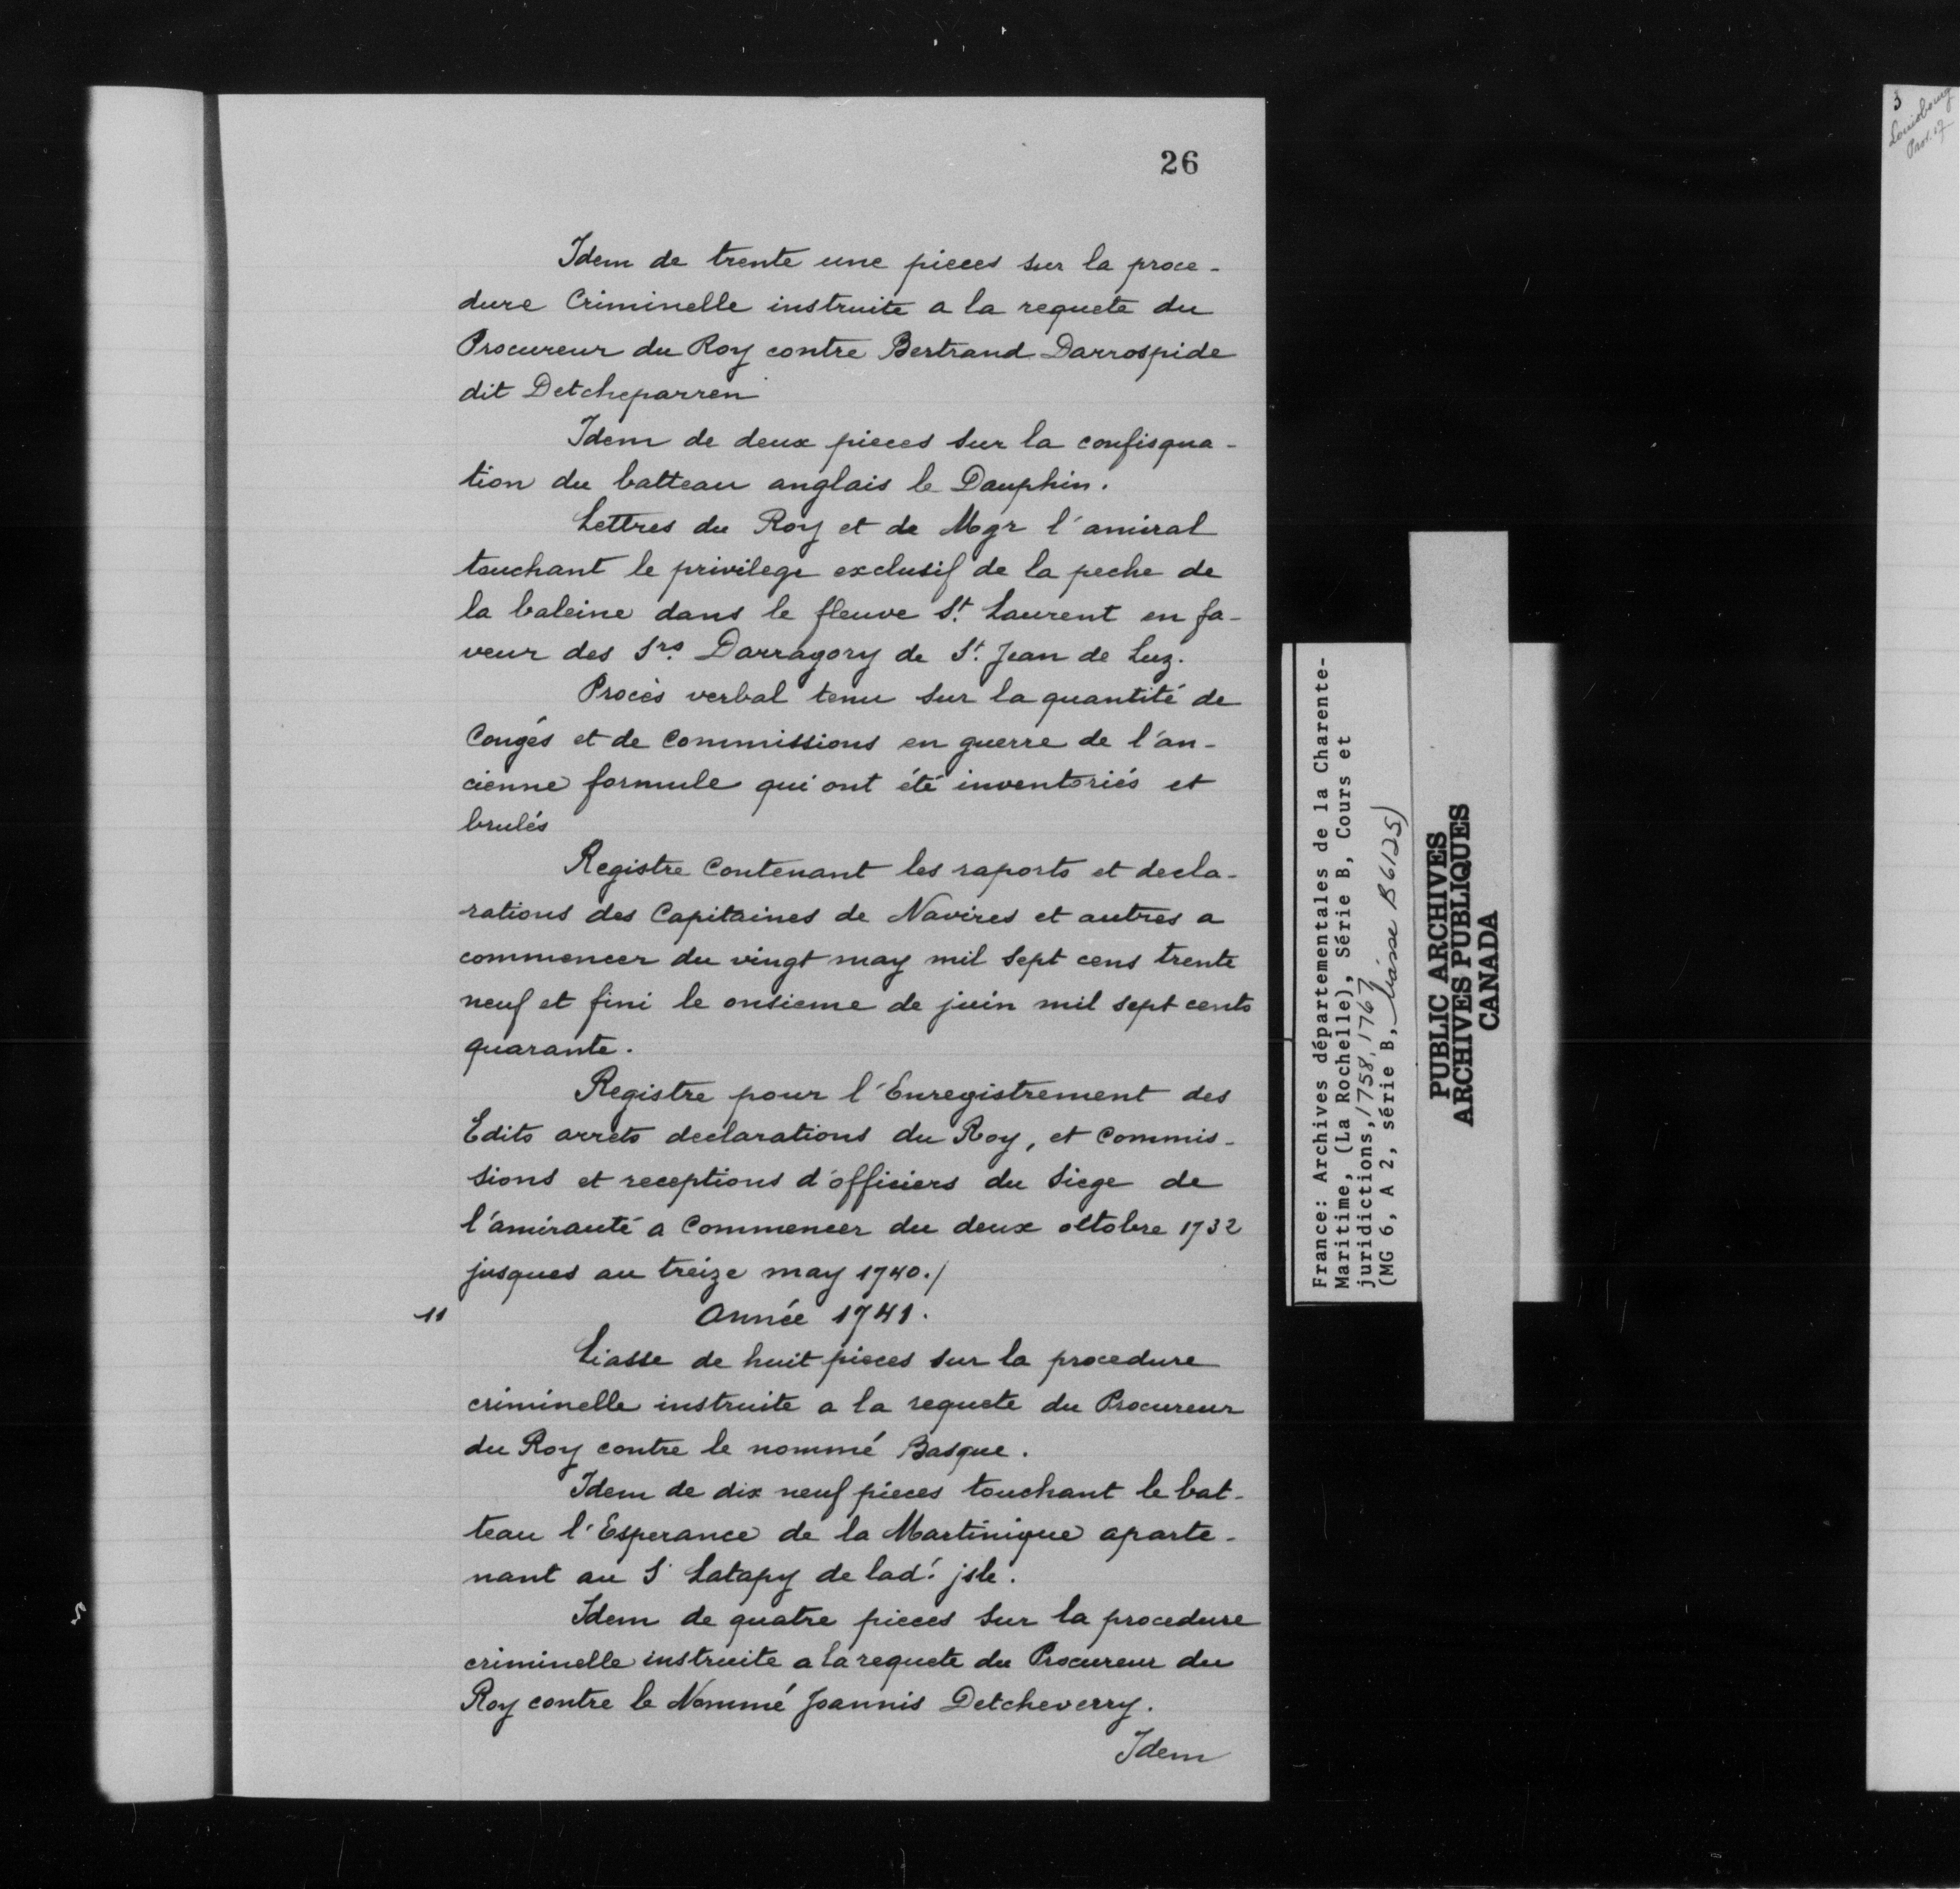 26
Idem de trente une pieces sur la proce-
dure Criminelle instruite a la requete du
Procureur du Roy contre Bertrand Darrospide
dit Detcheparren
Idem de deux pieces sur la confisqua-
tion du batteau anglais le Dauphin.
Lettres du Roy et de Mgr l'amiral
touchant le privilege exclusif de la peche de
la baleine dans le fleuve St. Laurent en fa-
veur des Srs. Darragory de St. Jean de Luz.
Procès verbal tenu sur la quantité de
Congés et de Commissions en guerre de l'an-
cienne formule qui ont été inventoriés et
brulés
Registre Contenant les raports et decla-
rations des Capitaines de Navires et autres a
commencer du vingt may mil sept cens trente
neuf et fini le onsieme de juin mil sept cents
quarante.
Registre pour l'Enregistrement des
Edits arrets declarations du Roy, et Commis-
sions et receptions d'officiers du Siege de
l'amirauté a Commencer du deux ottobre 1732
jusques au treize may 1740./
11 Année 1741.
Liasse de huit pieces sur la procedure
criminelle instruite a la requete du Procureur
du Roy contre le nommé Basque.
Idem de dix neuf pieces touchant le bat-
teau l'Esperance de la Martinique aparte-
nant au S Latapy de lad. jsle.
Idem de quatre pieces sur la procedure
criminelle instruite a la requete du Procureur du
Roy contre le Nommé Joannis Detcheverry.
Idem
France: Archives départementales de la Charente-
Maritime, (La Rochelle), Série B, Cours et
juridictions, 1758, 1767
(MG 6, A 2, série B, liasse B6125)
PUBLIC ARCHIVES
ARCHIVES PUBLIQUES
CANADA
3
Louisbourg